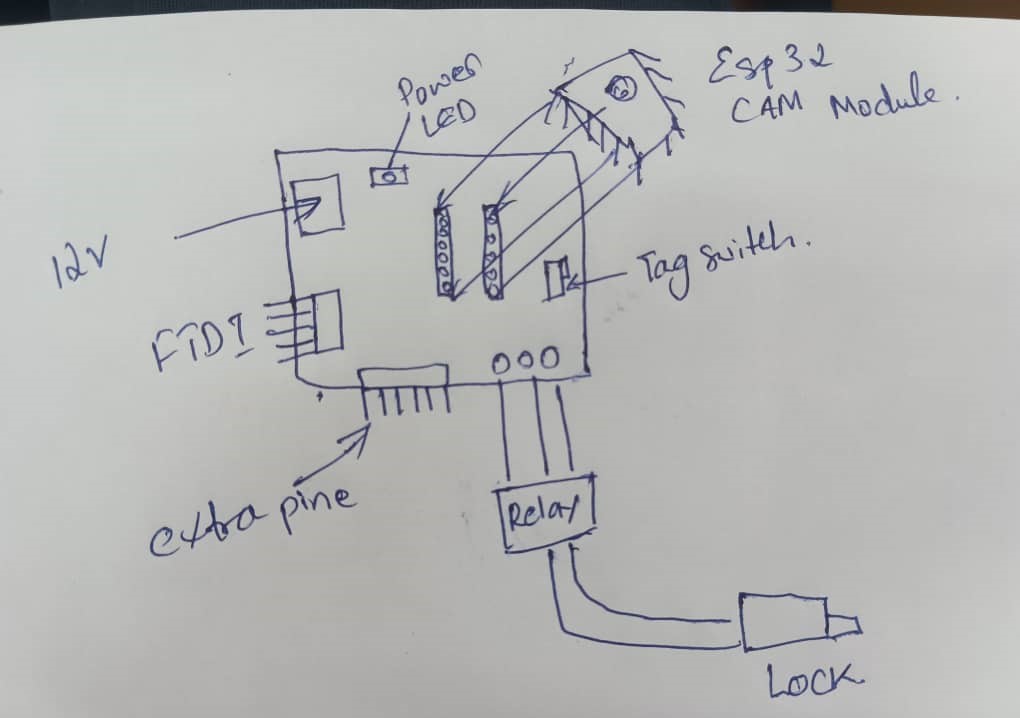 Power
LED
Esp32
CAM Module.
12V
Tag switch.
FTDI
extra pine
Relay
LOCK